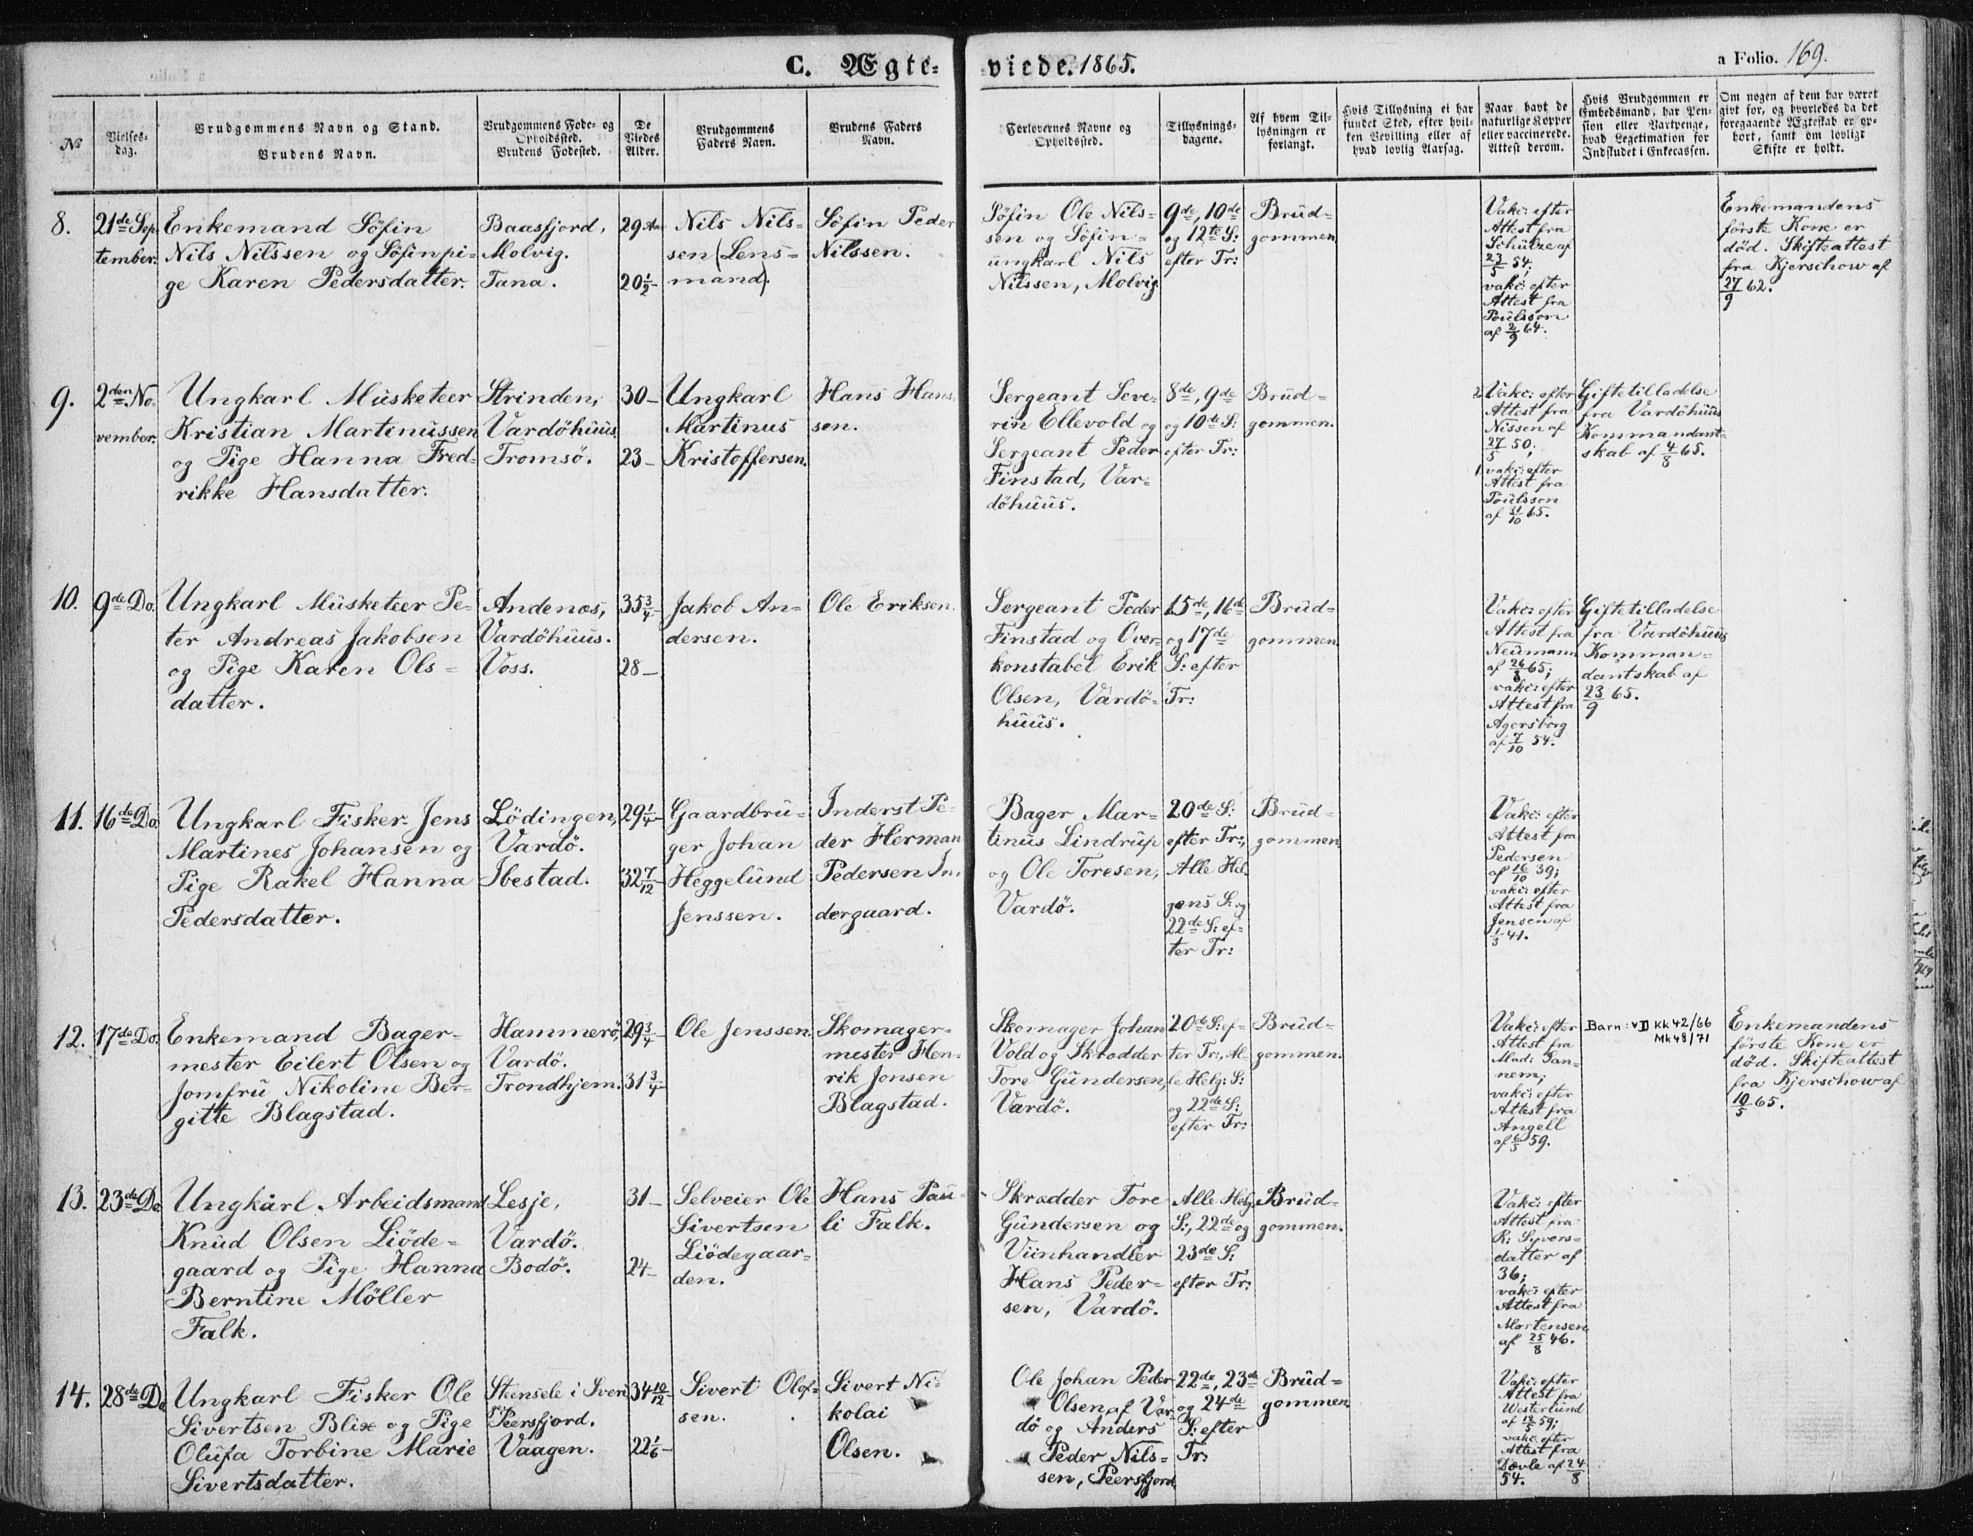 C. Ægteviede. 1865.
a Folio. 169.
No
Vielsesdag.
Brudgommens Navn og Stand.
Brudens Navn.
Brudgommens Føde- og
Opholdssted.
Brudens Fødested.
De
Viedes
Alder.
Brudgommens
Faders Navn.
Brudens Faders
Navn.
Forlovernes Navne og
Opholdssted.
Tillysnings-
dagene.
Af hvem Til-
lysningen er
forlangt.
Hvis Tillysning ei har
fundet Sted, efter hvil-
ken Bevilling eller af
hvad lovlig Aarsag.
Naar havt de
naturlige Kopper
eller vaccinerede.
Attest derom.
Hvis Brudgommen er
Embedsmand, har Pen-
sion eller Vartpenge,
hvad Legetimation for
Indskudet i Enkecassen.
Om nogen af dem har været
givt før, og hvorledes da det
foregaaende Ægteskab er op-
hørt, samt om lovligt
Skifte er holdt.
8.
21de Sep
tember.
Enkemand Söfin
Nils Nilssen og Söfinpi-
ge Karen Pedersdatter.
Baasfjord,
Molvig.
Tana.
29 Aar
20 1/2 -
Nils Nils-
sen (Lens-
mand).
Söfin Peder
Nilssen.
Söfin Ole Nils-
sen og Söfin-
ungkarl Nils
Nilssen, Molvig
9de, 10de
og 12te S:
efter Tr:
Brud-
gommen
Vakc: efter
Attest fra
Schütze af
23/5 54;
vakc: efter
Attest fra
Poulsson
af 2/9 64.
Enkemandens
förste Kone er
död. Skifteattest
fra Kjerschow af
27/9 62.
9.
2den No
vember.
Ungkarl Musketeer
Kristian Martinussen
og Pige Hanna Fred-
rikke Hansdatter.
Strinden,
Vardöhuus
Tromsö.
30 -
23 -
Ungkarl
Martinus
Kristoffersen.
Hans Han-
sen.
Sergeant Seve-
rin Ellevold og
Sergeant Peder
Finstad, Var-
döhuus.
8de, 9de
og 10de S:
efter Tr:
Brud-
gommen.
2 Vakc: efter
Attest fra
Nissen af
27/5 50;
1 vakc: efter
Attest fra
Poulsson
af 31/10 65.
Giftetilladelse
fra Vardöhuus
Kommandant-
skab af 4/8 65.
10.
9de Do.
Ungkarl Musketeer Pe-
ter Andreas Jakobsen
og Pige Karen Ols-
datter.
Andenæs,
Vardöhuus.
Voss.
35 3/4 -
28 -
Jakob An-
dersen.
Ole Eriksen.
Sergeant Peder
Finstad og Over-
konstabel Erik
Olsen, Vardö-
huus.
15de, 16de
og 17de
S: efter
Tr:
Brud-
gommen
Vakc: efter
Attest fra
Neumann
af 26/8 65;
vakc: efter
Attest fra
Agersborg
af 7/10 54.
Giftetilladelse
fra Vardöhuus
Komman-
dantskab af
23/9 65.
11.
16de Do.
Ungkarl Fisker Jens
Martines Johansen og
Pige Rakel Hanna
Pedersdatter.
Lödingen,
Vardö.
Ibestad.
29 1/4 -
32 7/12 -
Gaardbru-
ger Johan
Heggelund
Jenssen.
Inderst Pe-
der Herman
Pedersen In-
dergaard.
Bager Mar-
tinus Lindrup
og Ole Toresen,
Vardö.
20de S:
efter Tr:,
Alle Hel-
gens S: og
22de S: ef-
ter Tr:
Brud-
gommen
Vakc: efter
Attest fra
Pedersen
af 16/10 39;
vakc: efter
Attest fra
Jensen af
1/3 41.
12.
17de Do.
Enkemand Bager-
mester Eilert Olsen og
Jomfru Nikoline Ber-
gitte Blagstad.
Hammerö,
Vardö.
Trondhjem.
29 3/4 -
31 3/4 -
Ole Jenssen.
Skomager-
mester Hen-
rik Jonsen
Blagstad.
Skomager Johan
Vold og Skrædder
Tore Gundersen,
Vardö.
20de S: ef-
ter Tr:, Al-
le Helg: S:
og 22de S:
efter Tr:
Brud-
gommen.
Vakc: efter
Attest fra
Mad: Jan-
nem;
vakc: efter
Attest fra
Angell
af 6/5 59.
Barn: VD KK 42/66
MK 48/71
Enkemandens
förste Kone er
död. Skifteattest
fra Kjerschow af
10/5 65.
13.
23de Do
Ungkarl Arbeidsmand
Knud Olsen Liöde-
gaard og Pige Hanna
Berntine Möller
Falk.
Lesje,
Vardö.
Bodö.
31 -
24 -
Selveier Ole
Sivertsen
Liödegaar-
den.
Hans Pau-
li Falk.
Skrædder Tore
Gundersen og
Viinhandler
Hans Peder-
sen, Vardö.
Alle Helg:
S:, 22de og
23de S:
efter Tr:
Brud-
gommen.
Vakc: efter
Attest fra
K: Syvers-
datter af
36;
vakc: efter
Attest fra
Mortensen
af 25/8 46.
14.
28de Do
Ungkarl Fisker Ole
Sivertsen Blix og Pige
Olufa Torbine Marie
Sivertsdatter.
Steensele i Sveri
Peersfjord.
Vaagen.
34 10/12 -
22 1/6 -
Sivert Olof-
sen.
Sivert Ni-
kolai
Olsen.
Ole Johan Peder
Olsen af Var-
dö og Anders
Peder Nils-
sen, Peersfjord
22de, 23de
og 24de
S: efter
Tr:
Brud-
gommen
Vakc: efter
Attest fra
Westerlund
af 12/5 59;
vakc: efter
Attest fra
Dævle af 24/8
54.